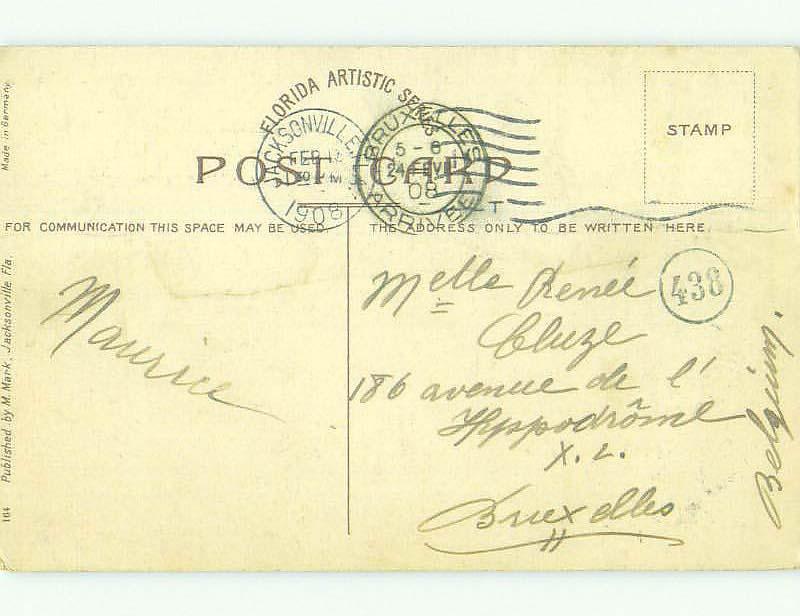 FLORIDA ARTISTIC SERIES
JACKSONVILLE,
FEB
1908
BRUXELLES
5 - 6
24 FEVR
08
ARRIVEE
POST CARD
STAMP
T
FOR COMMUNICATION THIS SPACE MAY BE USED.
THE ADDRESS ONLY TO BE WRITTEN HERE.
Maurice
Melle Renée
Cluze
438
186 avenue de l'
Hyppodrôme
X. L.
Bruxelles
Belgium.
Made in Germany
Published by M. Mark, Jacksonville, Fla.
164